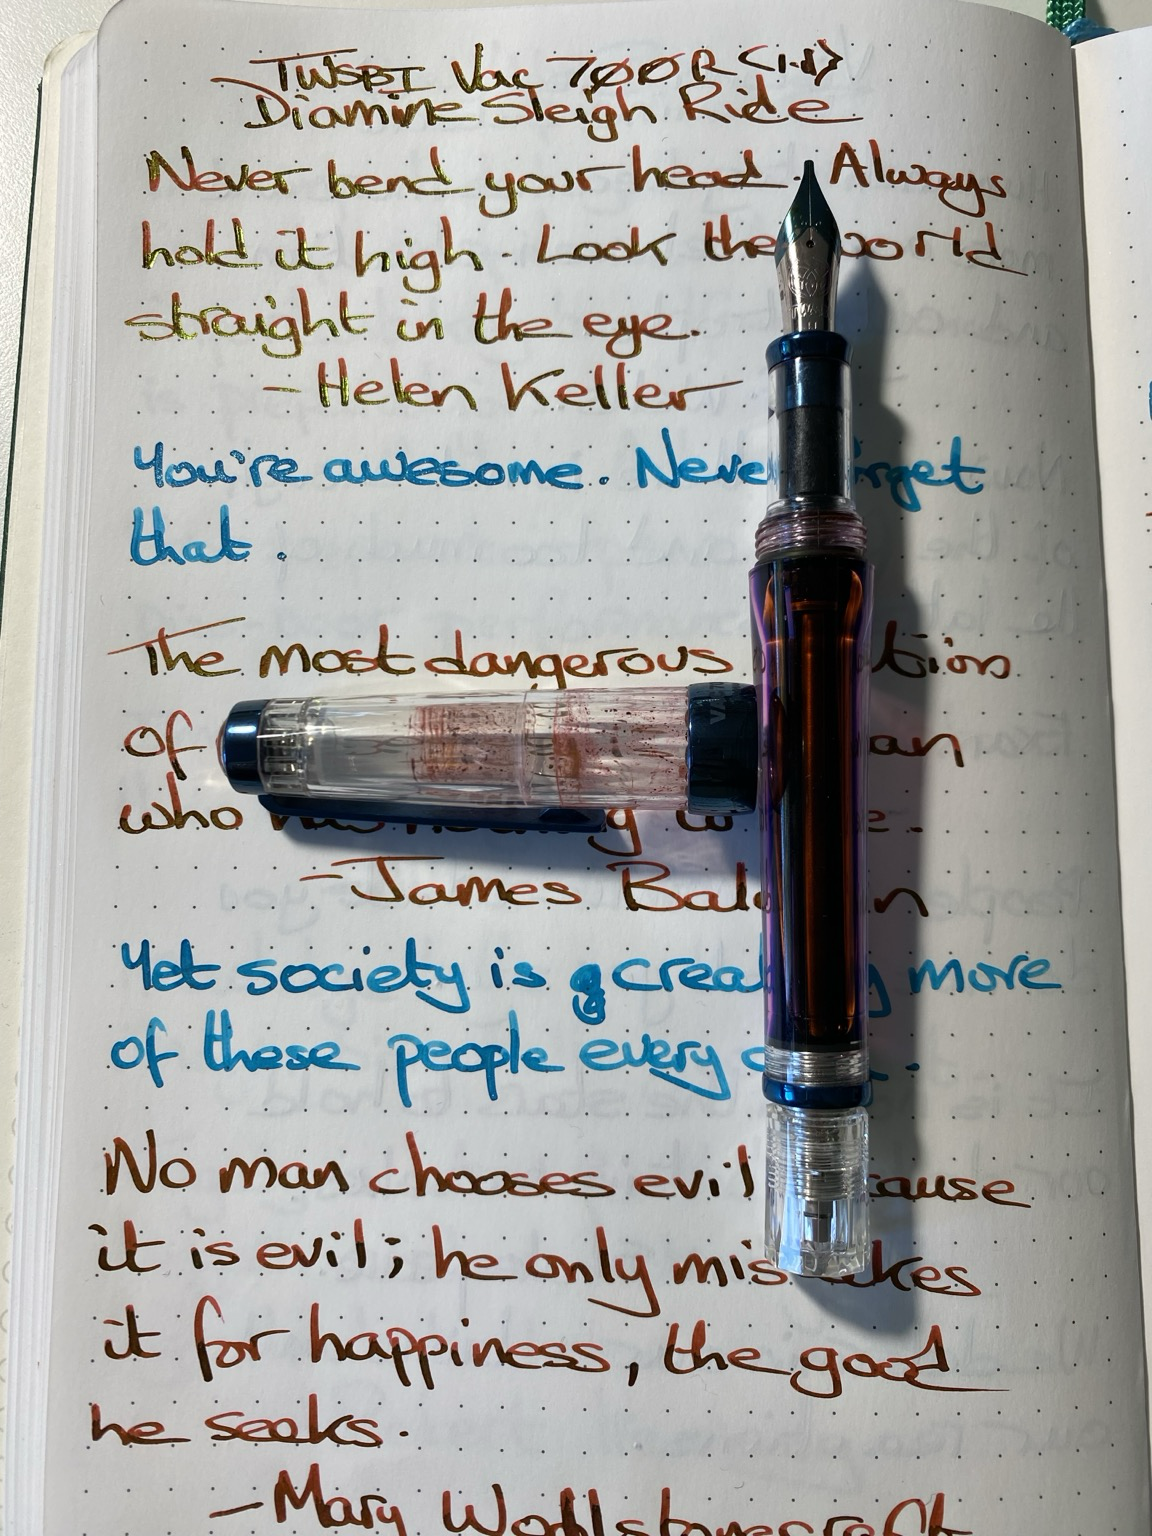 TWSBI Vac 700R <1.1>
Diamine Sleigh Ride
Never bend your head. Always
hold it high. Look the world
straight in the eye.
- Helen Keller
You're awesome. Never forget
that.
The most dangerous
of an
who has nothing to
- James Baldwin
Yet society is creating more
of these people every
No man chooses evil because
it is evil; he only mistakes
it for happiness, the good
he seeks.
- Mary Wollstonecraft